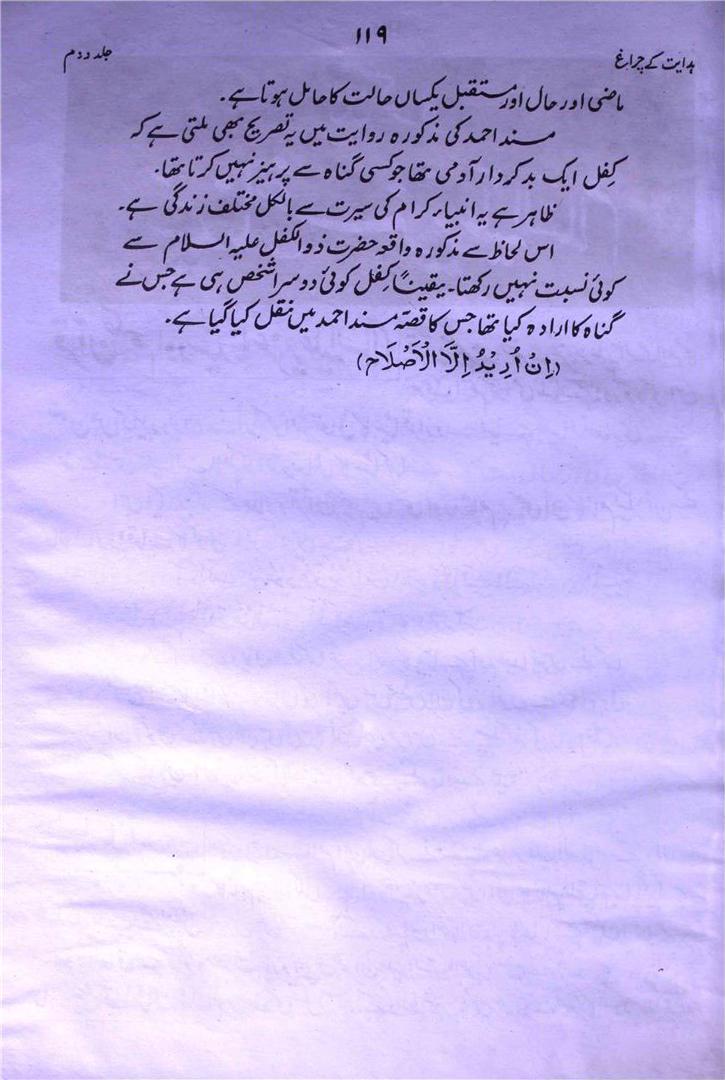 ۱۱۹
ہدایت کے چراغ جلد دوم
ماضی اور حال اور مستقبل یکساں حالت کا حامل ہوتا ہے۔
مسند احمد کی مذکورہ روایت میں یہ تصریح بھی ملتی ہے کہ
کِفل ایک بدکردار آدمی تھا جو کسی گناہ سے پرہیز نہیں کرتا تھا۔
ظاہر ہے یہ انبیاء کرام کی سیرت سے بالکل مختلف زندگی ہے۔
اس لحاظ سے مذکورہ واقعہ حضرت ذوالکفل علیہ السلام سے
کوئی نسبت نہیں رکھتا۔ یقیناً کِفل کوئی دوسرا شخص ہی ہے جس نے
گناہ کا ارادہ کیا تھا جس کا قصّہ مسند احمد میں نقل کیا گیا ہے۔
(اِنْ اُرِیْدُ اِلَّا الْاَصْلَاح)